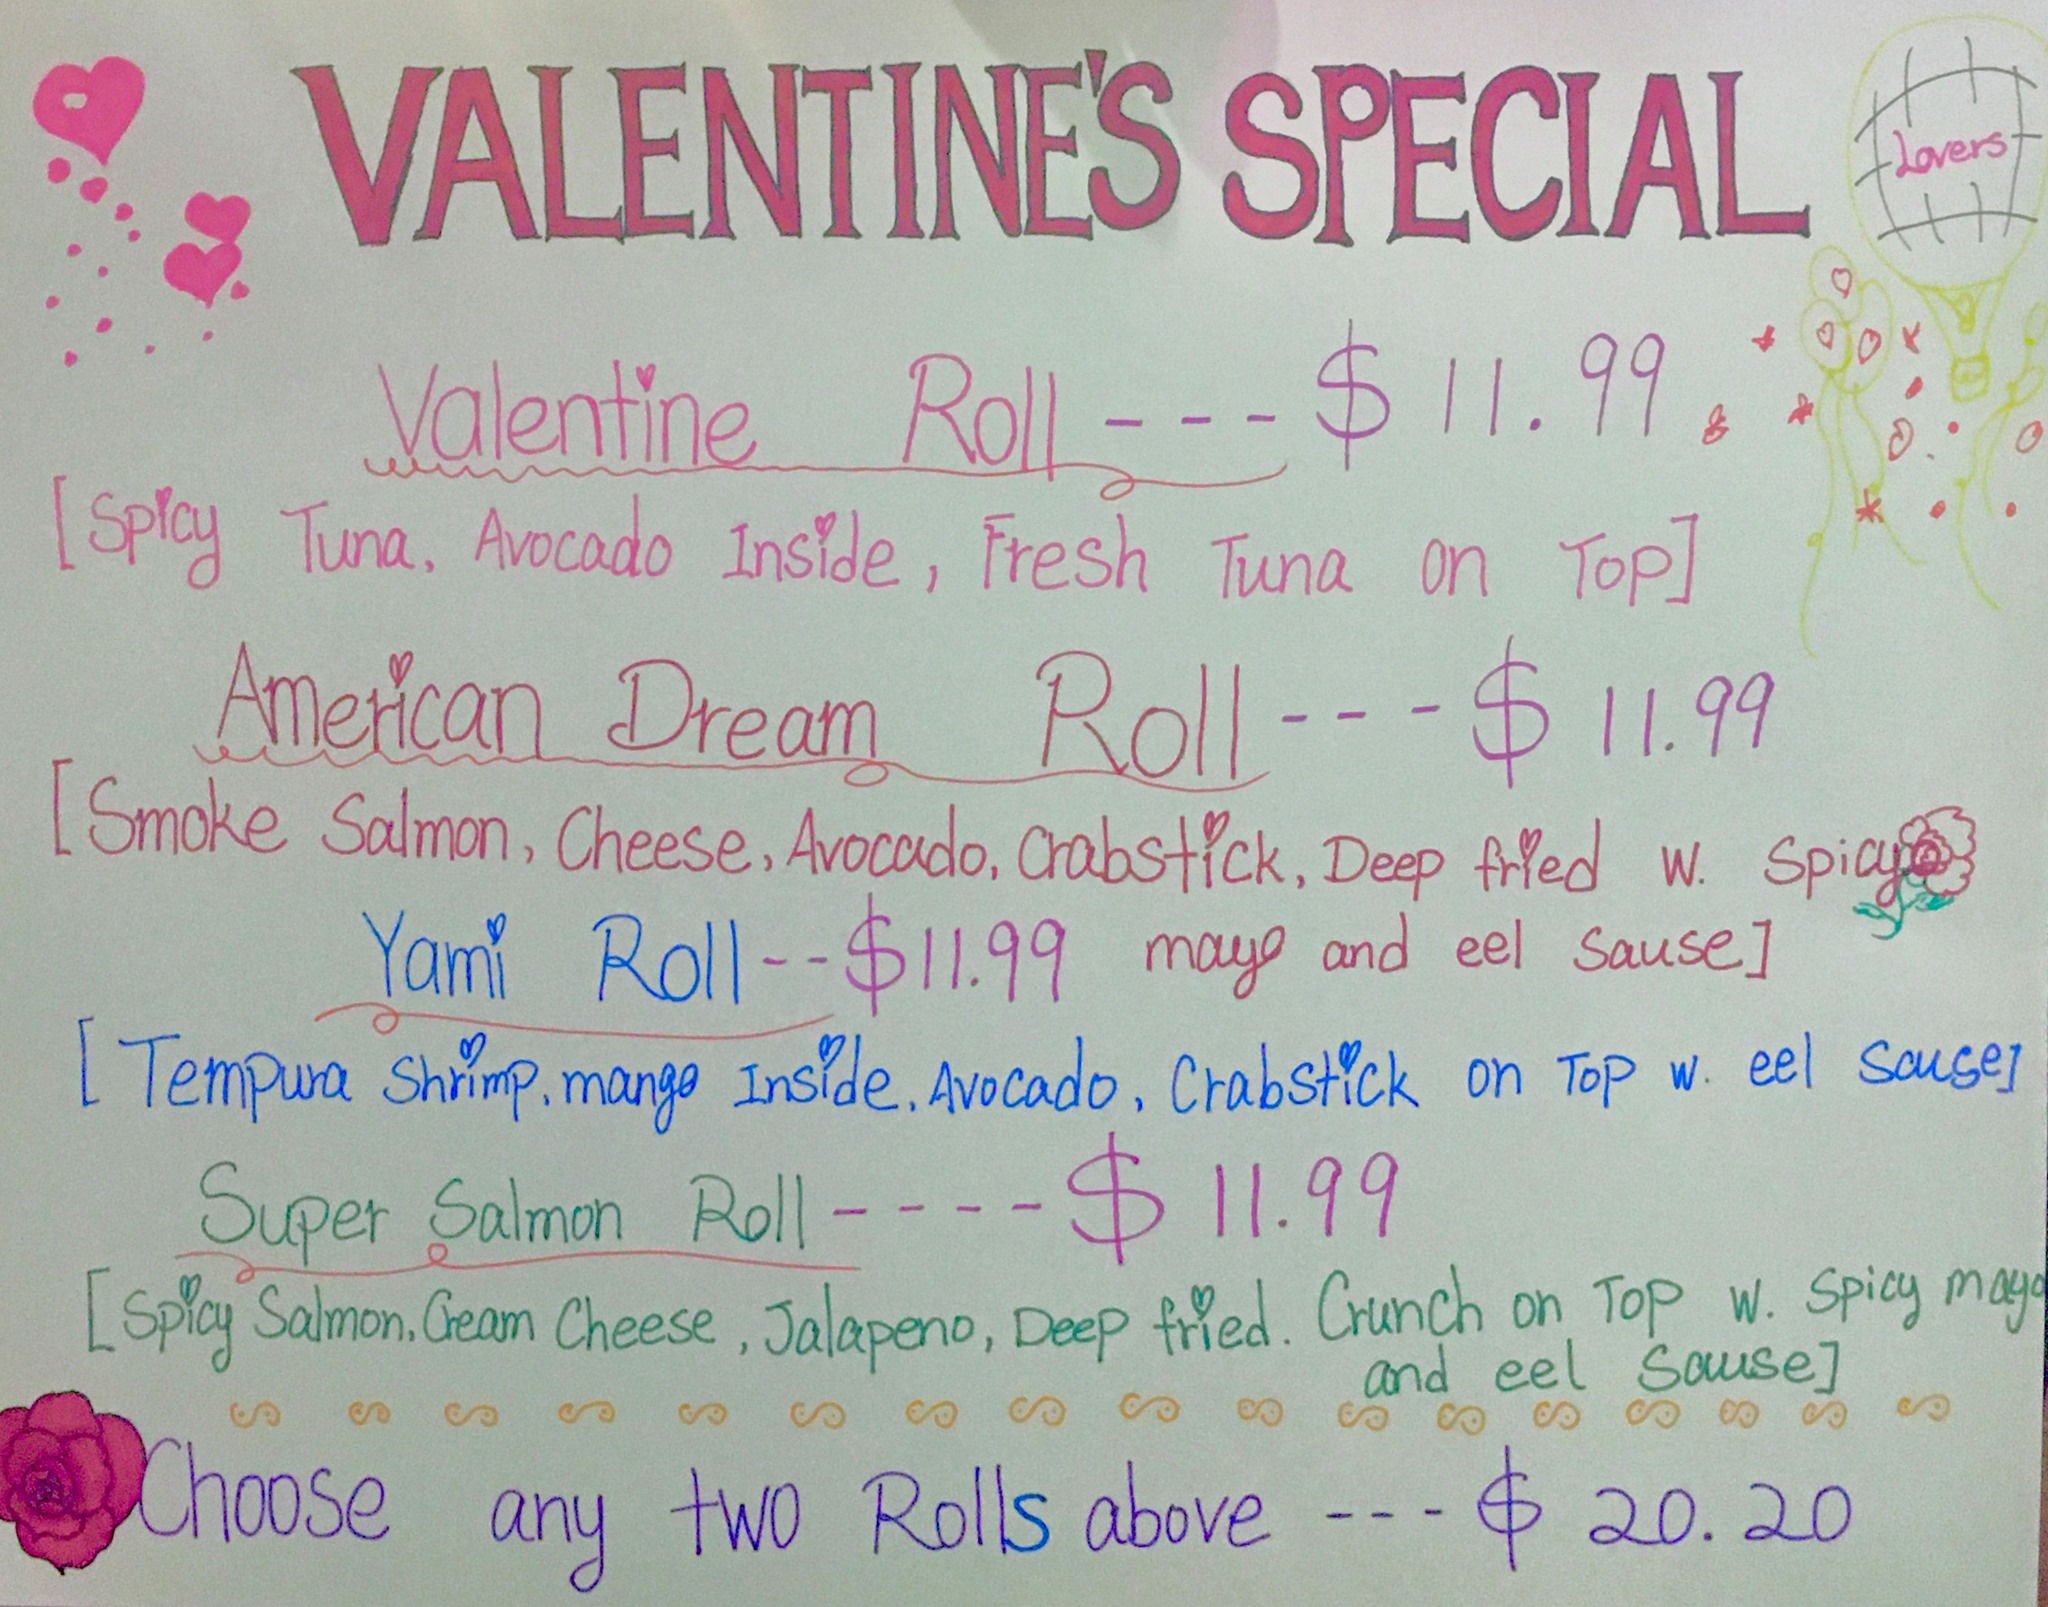 VALENTINE'S SPECIAL
Lovers
Valentine Roll --- $ 11.99
[Spicy Tuna, Avocado Inside, Fresh Tuna on Top]
American Dream Roll --- $ 11.99
[Smoke Salmon, Cheese, Avocado, Crabstick, Deep fried w. Spicy
mayo and eel Sause]
Yami Roll -- $11.99
[Tempura Shrimp, mango Inside, Avocado, Crabstick on Top w. eel Sause]
Super Salmon Roll ---- $ 11.99
[Spicy Salmon, Cream Cheese, Jalapeno, Deep fried. Crunch on Top w. Spicy mayo
and eel Sause]
Choose any two Rolls above --- $ 20.20